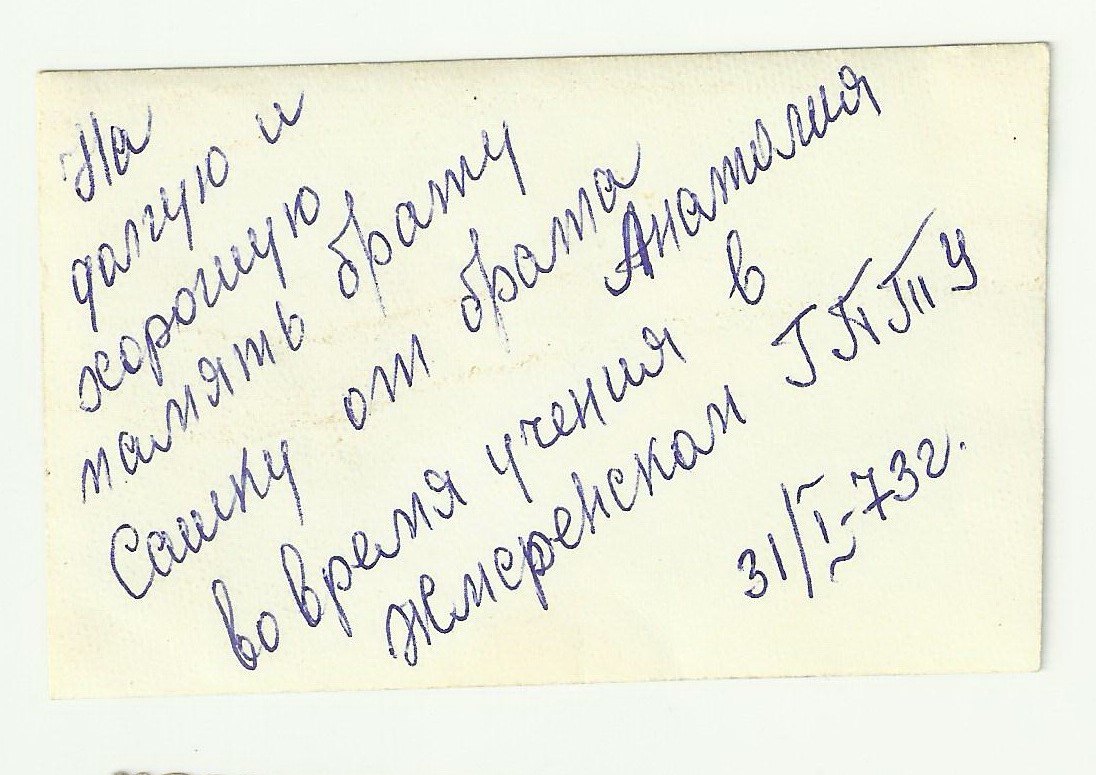 На
долгую и
хорошую
память брату
Сашку от брата
Анатолия
во время учения в
Жмеренском ГПТУ
31/I-73г.